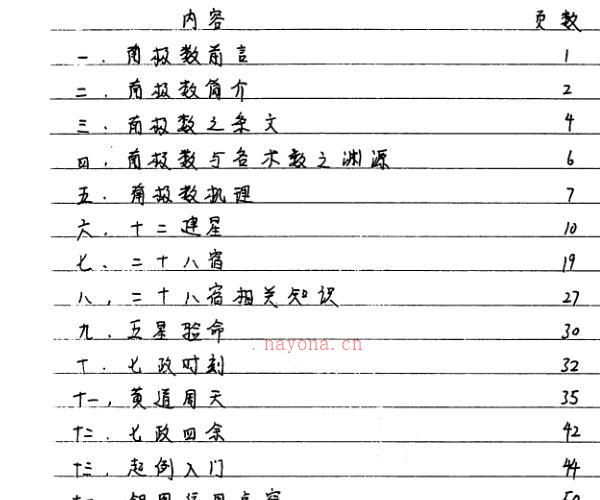 内容 页数
一、南极数前言 1
二、南极数简介 2
三、南极数之条文 4
四、南极数与各术数之渊源 6
五、南极数机理 7
六、十二建星 10
七、二十八宿 19
八、二十八宿相关知识 27
九、五星验命 30
nayona.cn
十、七政时刻 32
十一、黄道周天 35
十二、七政四余 42
十三、起例入门 44